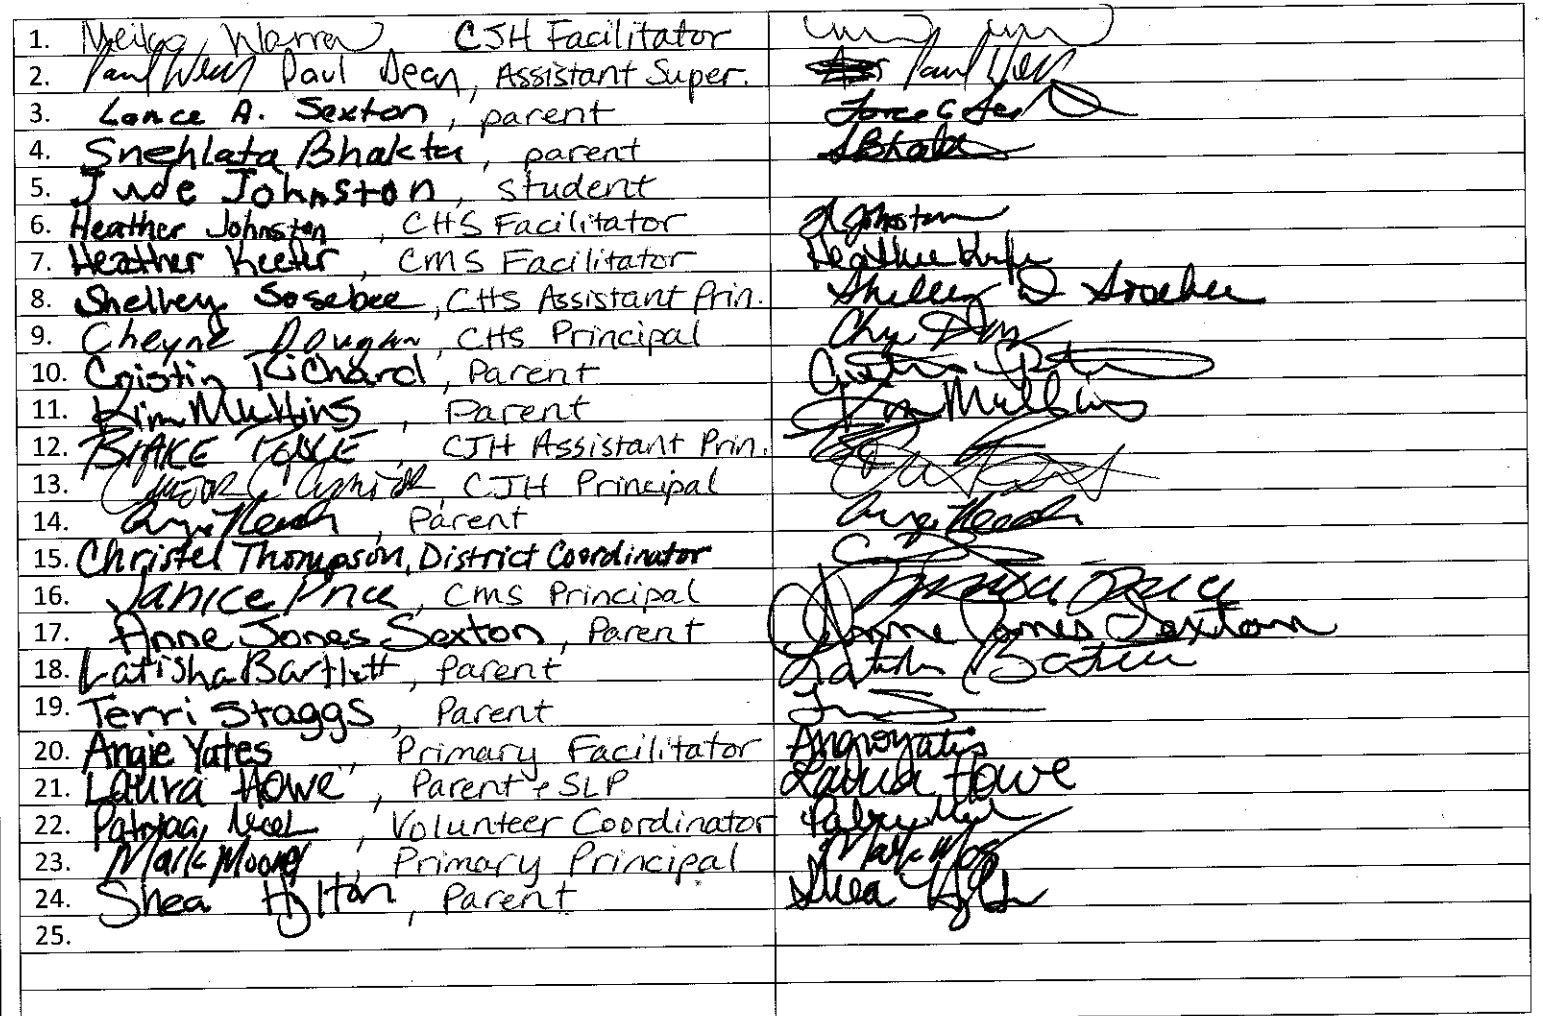 1. Warren CJH Facilitator
2. Paul Dean, Assistant Super.
3. Lance A. Sexton, parent
4. Snehlata Bhakta, parent S Bhakta
5. Jude Johnston, student
6. Heather Johnston, CHS Facilitator H Johnston
7. Heather Keefer, CMS Facilitator Heather
8. Shelley Sosebee, CHS Assistant Prin. Shelley D Sosebee
9. Cheyne Dougan, CHS Principal
10. Cristin Richard, Parent
11. Kim Mullins, Parent Kim Mullins
12. BLAKE, CJH Assistant Prin.
13. CJH Principal
14. Parent
15. Christel Thompson, District Coordinator
16. Janice Price, CMS Principal Janice Price
17. Anne Jones Sexton, Parent Anne Jones Sexton
18. Latisha Bartlett, parent
19. Terri Staggs, Parent
20. Angie Yates, Primary Facilitator Angie Yates
21. Laura Howe, Parent & SLP Laura Howe
22. Volunteer Coordinator
23. Mark Moore, Primary Principal Mark
24. Shea Hylton, Parent Shea Hylton
25.